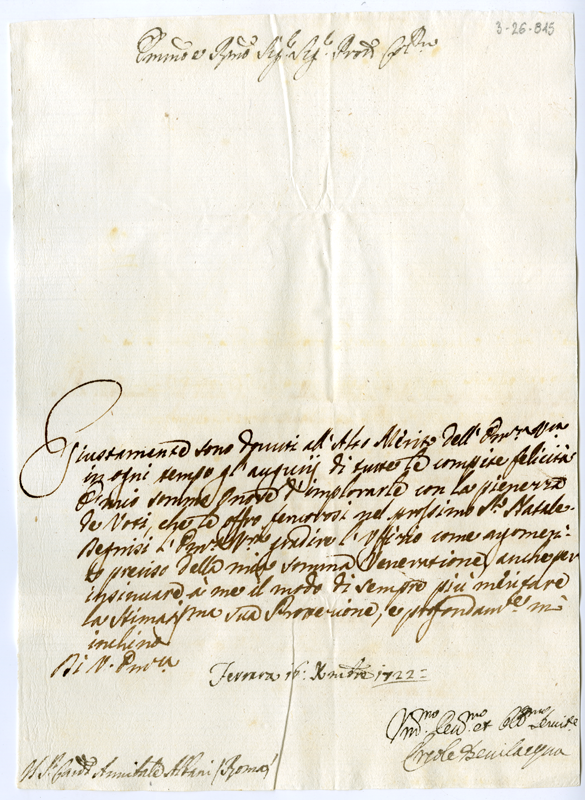 3-26-815
Emin.o e Rmo Sig.r Sig.r Pron Col.mo
Giustamente sono dovuti all'Alto Merito dell'Em.za Vra
in ogni tempo gl'augurij di tutte le compite felicità
È mio sommo onore d'implorarle con la pienezza
de Voti, che le offro fervorosi nel prossimo S.to Natale.
Degnisi l'Em.za V.ra gradire l'Uffizio come argomen-
to preciso della mia somma Venerazione, anche per
insinuare à me il modo di sempre più meritare
la Stimatissima sua Protezione, e profondam.te m'
inchino
Di V. Em.za
Ferrara 16: Xmbre 1722=
Vm.mo Dev.mo et Obb.mo Servit.e
Ercole Bevilacqua
S.r Card. Annibale Albani (Roma)